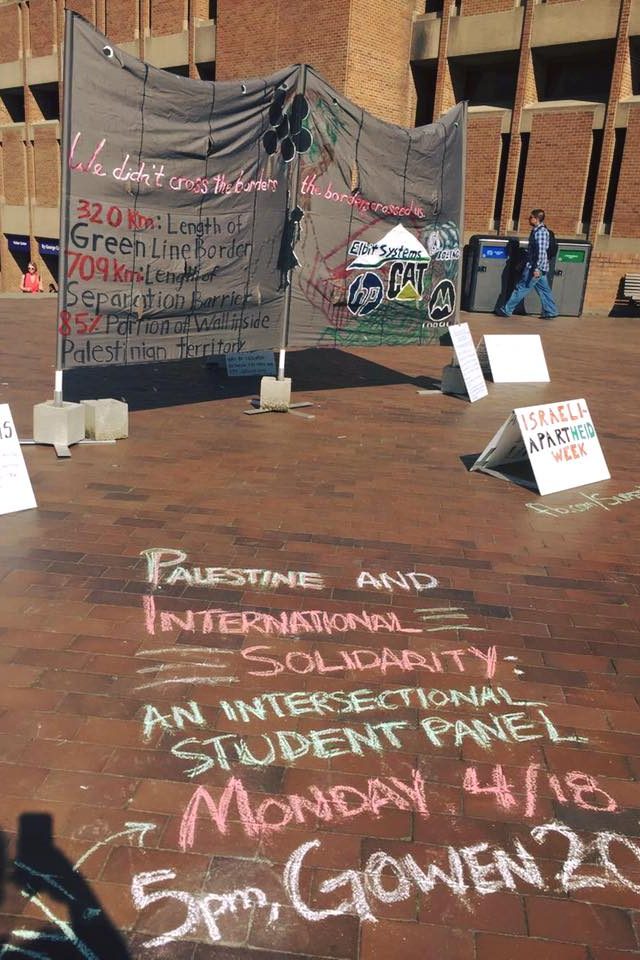 We didn't cross the borders the borders crossed us.
320 Km: Length of
Green Line Border
709 Km: Length of
Separation Barrier
85% Portion of Wall inside
Palestinian Territory
Elbit Systems
CAT
hp
ISRAELI-
APARTHEID
WEEK
PALESTINE AND
INTERNATIONAL
SOLIDARITY:
AN INTERSECTIONAL
STUDENT PANEL
MONDAY 4/18
5pm, GOWEN 20